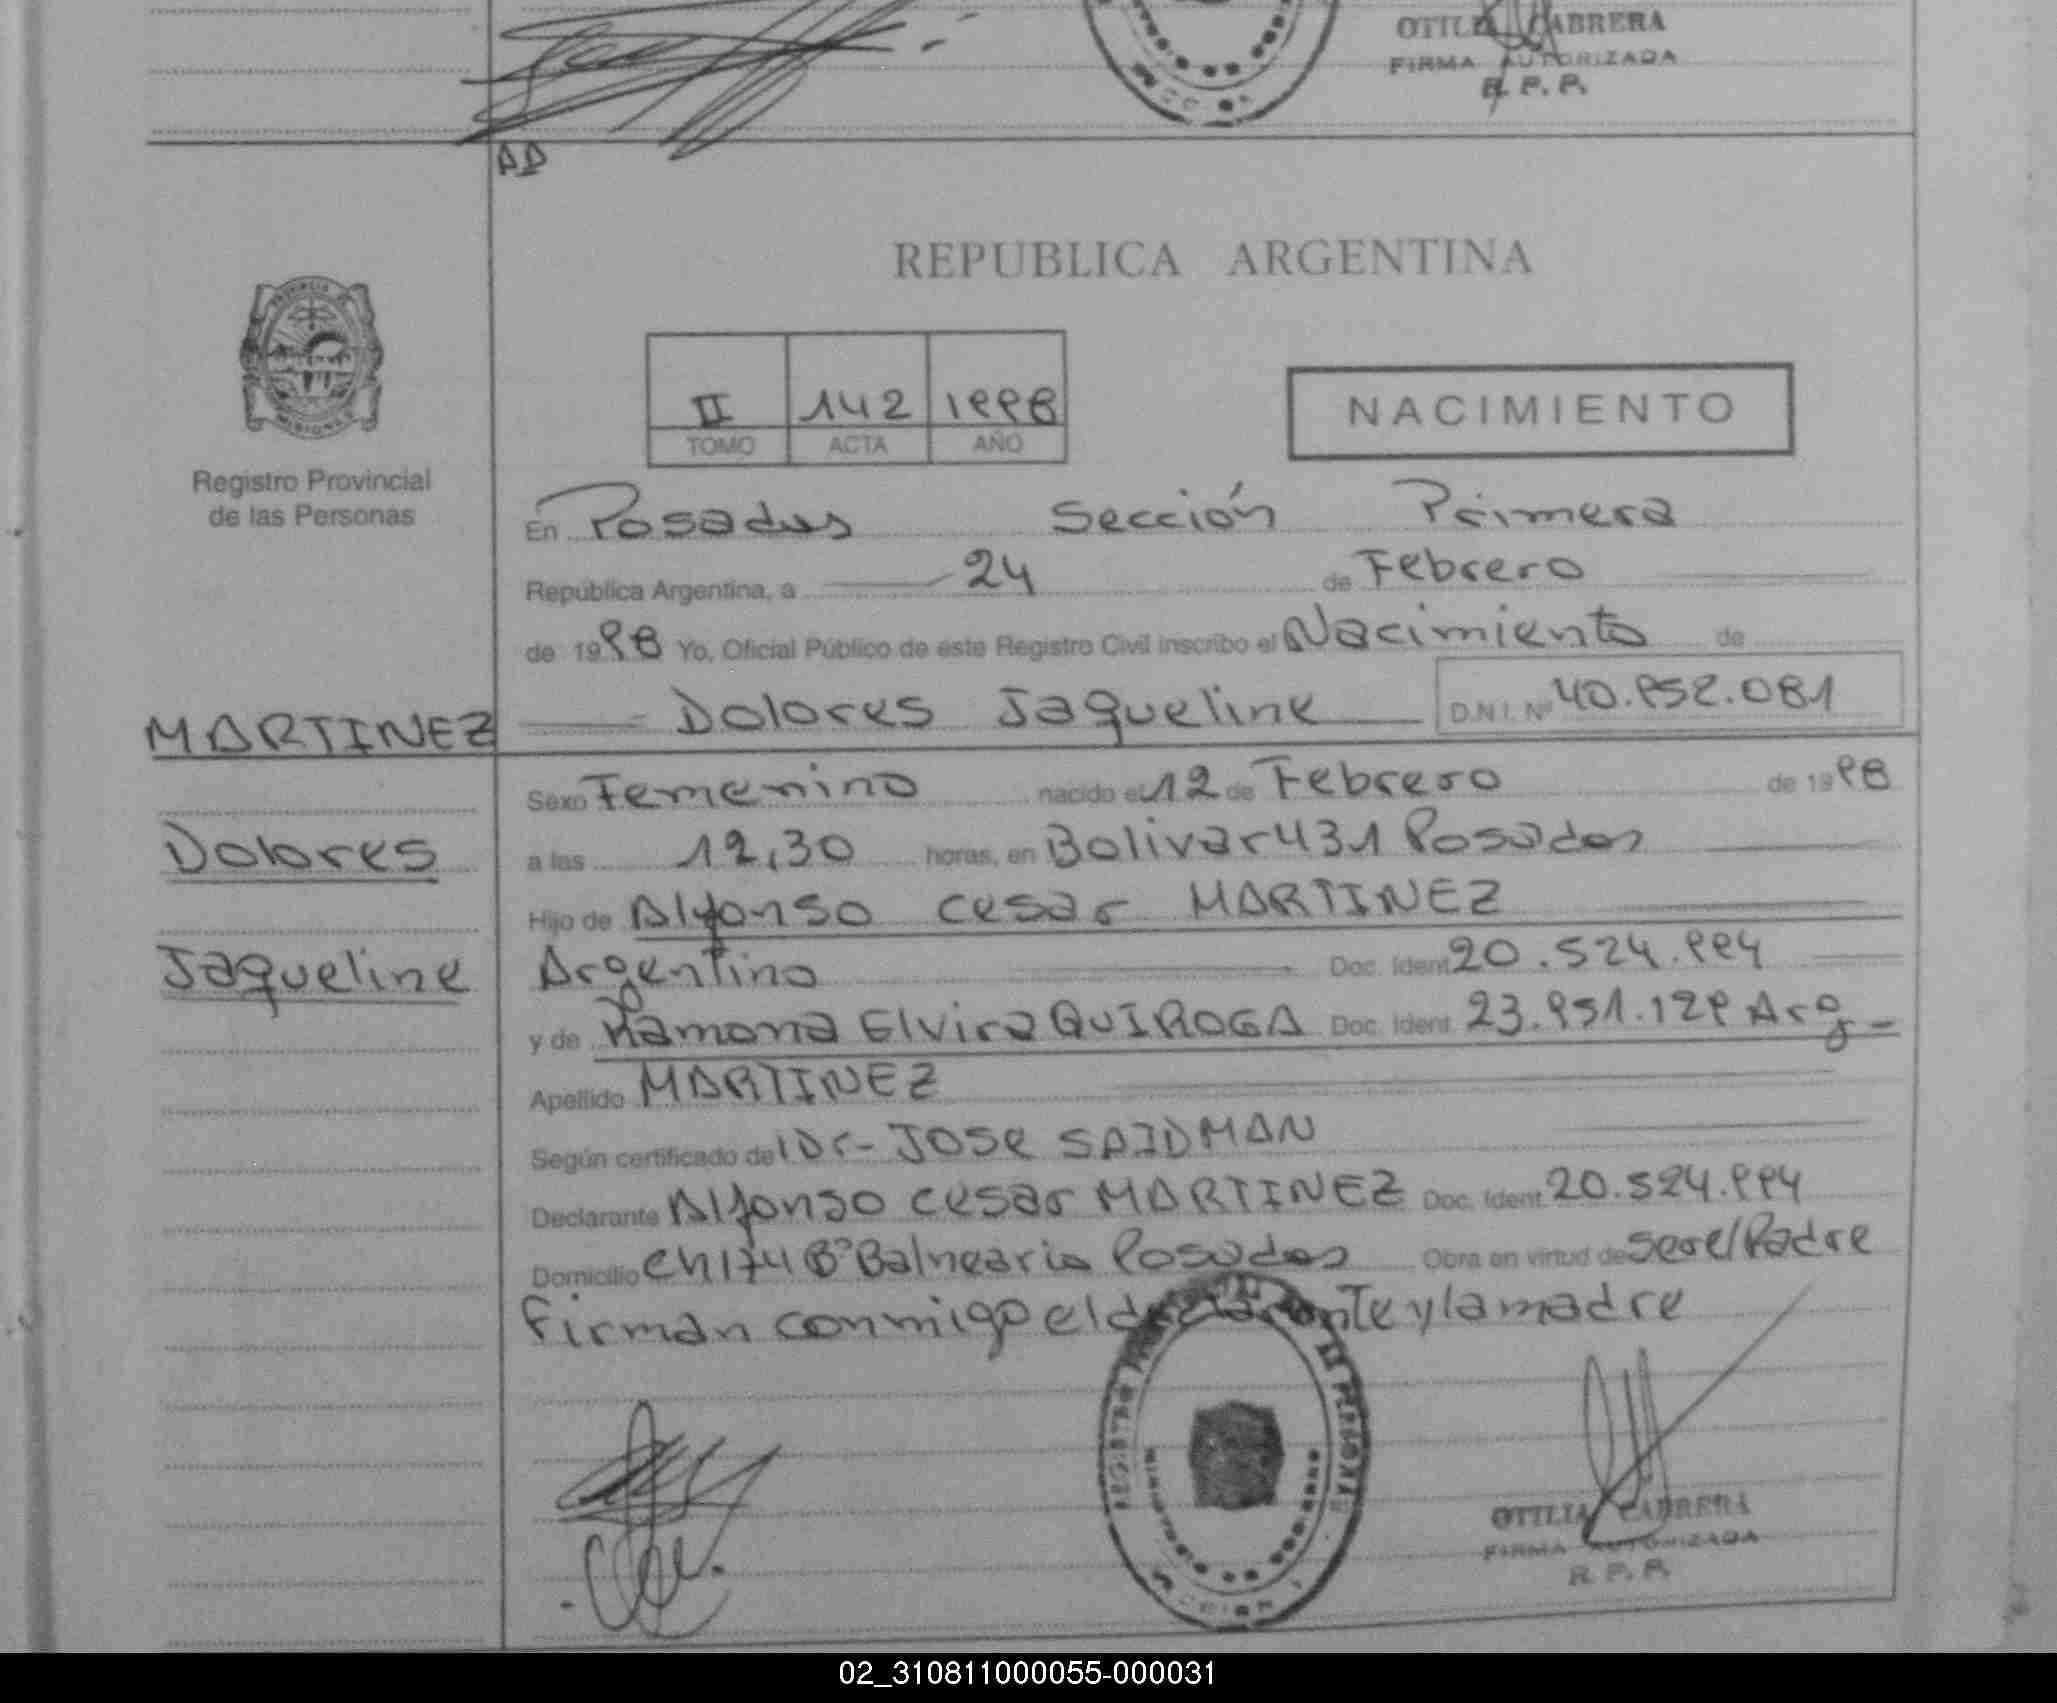 OTILIA CABRERA
FIRMA AUTORIZADA
R. P. P.
REPUBLICA ARGENTINA
PROVINCIA DE
MISIONES
II 142 1998
TOMO ACTA AÑO
NACIMIENTO
Registro Provincial
de las Personas
En Posadas Sección Primera
República Argentina, a 24 de Febrero
de 1998 Yo, Oficial Público de este Registro Civil inscribo el Nacimiento de
MARTINEZ Dolores Jaqueline D.N.I. Nº 40.952.081
Sexo Femenino nacido el 12 de Febrero de 1998
Dolores a las 12,30 horas, en Bolivar 431 Posadas
Hijo de Alfonso Cesar MARTINEZ
Jaqueline Argentino Doc. Ident. 20.524.994
y de Ramona Elvira QUIROGA Doc. Ident. 23.951.129 Arg_
Apellido MARTINEZ
Según certificado de Dr- JOSE SAIDMAN
Declarante Alfonso Cesar MARTINEZ Doc. Ident. 20.524.994
Domicilio Ch 174 Bº Balneario Posadas Obra en virtud de ser el Padre
Firman conmigo el declarante y la madre
OTILIA CABRERA
FIRMA AUTORIZADA
R. P. P.
02_310811000055-000031